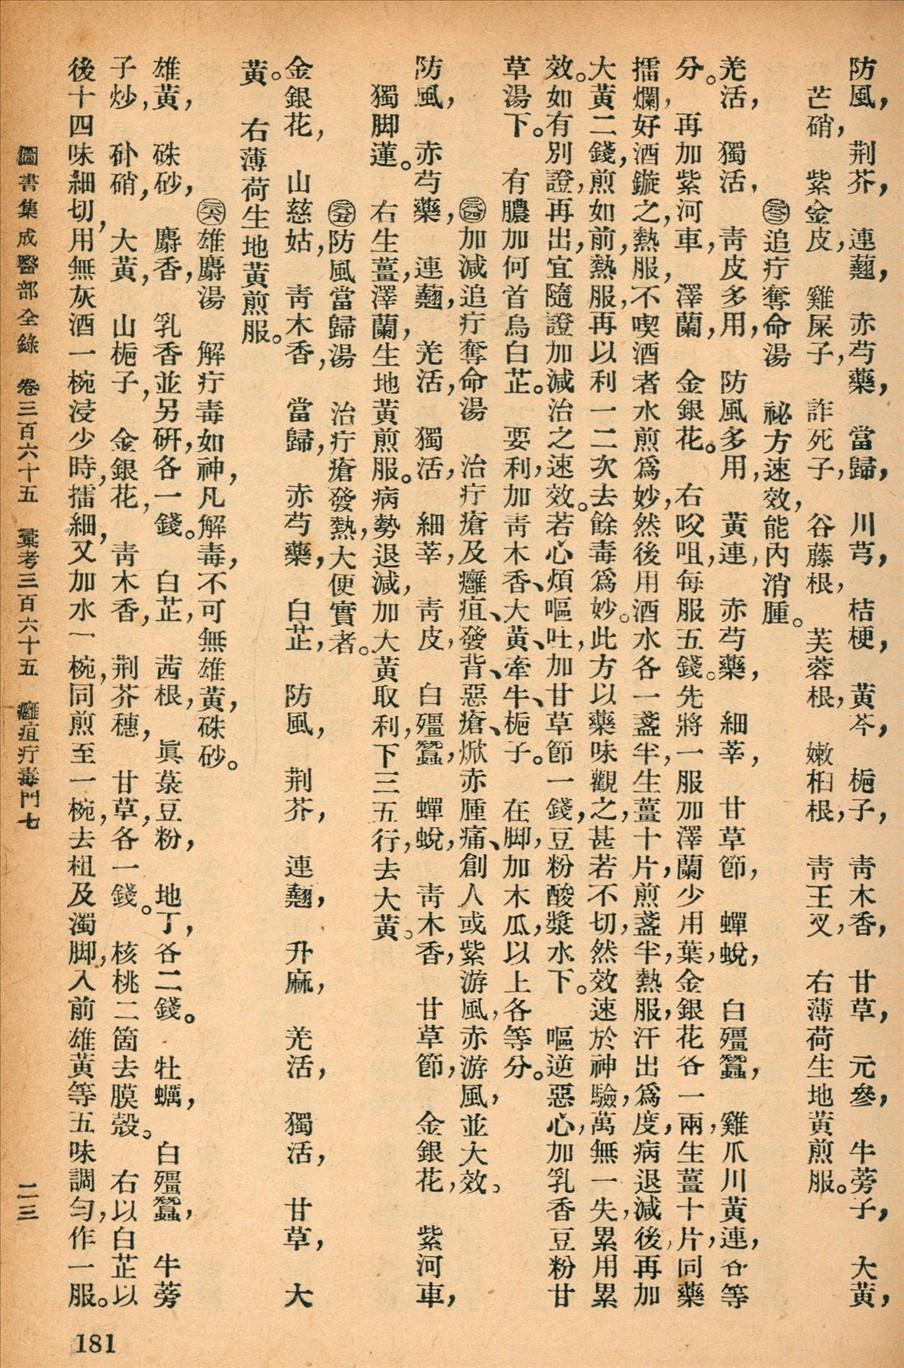 防風，荆芥，連翹，赤芍藥，當歸，川芎，桔梗，黃芩，梔子，靑木香，甘草，元參，牛蒡子，大黃，
芒硝，紫金皮，雞屎子，詐死子，谷藤根，芙蓉根，嫩桕根，靑王叉，右薄荷生地黃煎服。
追疔奪命湯　祕方速效，能內消腫。
羌活，獨活，靑皮多用，防風多用，黃連，赤芍藥，細莘，甘草節，蟬蛻，白殭蠶，雞爪川黃連，各等
分。再加紫河車，澤蘭，金銀花。右㕮咀，每服五錢。先將一服加澤蘭少用葉，金銀花各一兩，生薑十片，同藥
擂爛，好酒鏇之，熱服，不喫酒者水煎爲妙，然後用酒水各一盞半，生薑十片，煎盞半，熱服，汗出爲度，病退減後，再加
大黃二錢，煎如前，熱服，再以利一二次去餘毒爲妙。此方以藥味觀之，甚若不切，然效速於神驗，萬無一失，累用累
效。如有別證，再出宜隨證加減，治之速效。若心煩嘔吐，加甘草節一錢，豆粉酸漿水下。嘔逆惡心，加乳香豆粉甘
草湯下。有膿加何首烏白芷。要利，加靑木香、大黃、牽牛、梔子。在脚，加木瓜，以上各等分。
加減追疔奪命湯　治疔瘡及癰疽、發背、惡瘡、焮赤腫痛、創人或紫游風，赤游風，並大效。
防風，赤芍藥，連翹，羌活，獨活，細莘，靑皮，白殭蠶，蟬蛻，靑木香，甘草節，金銀花，紫河車，
獨脚蓮。右生薑澤蘭生地黃煎服。病勢退減，加大黃取利，下三五行，去大黃。
防風當歸湯　治疔瘡發熱，大便實者。
金銀花，山慈姑，靑木香，當歸，赤芍藥，白芷，防風，荆芥，連翹，升麻，羌活，獨活，甘草，大
黃。右薄荷生地黃煎服。
雄麝湯　解疔毒如神，凡解毒，不可無雄黃，硃砂。
雄黃，硃砂，麝香，乳香並另研，各一錢。白芷，茜根，眞菉豆粉，地丁，各二錢。牡蠣，白殭蠶，牛蒡
子炒，朴硝，大黃，山梔子，金銀花，靑木香，荆芥穗，甘草，各一錢。核桃二箇去膜殼。右以白芷以
後十四味細切，用無灰酒一椀浸少時，擂細，又加水一椀，同煎至一椀，去柤及濁脚，入前雄黃等五味調勻，作一服。
圖書集成醫部全錄　卷三百六十五　彙考三百六十五　癰疽疔毒門七　二三
181